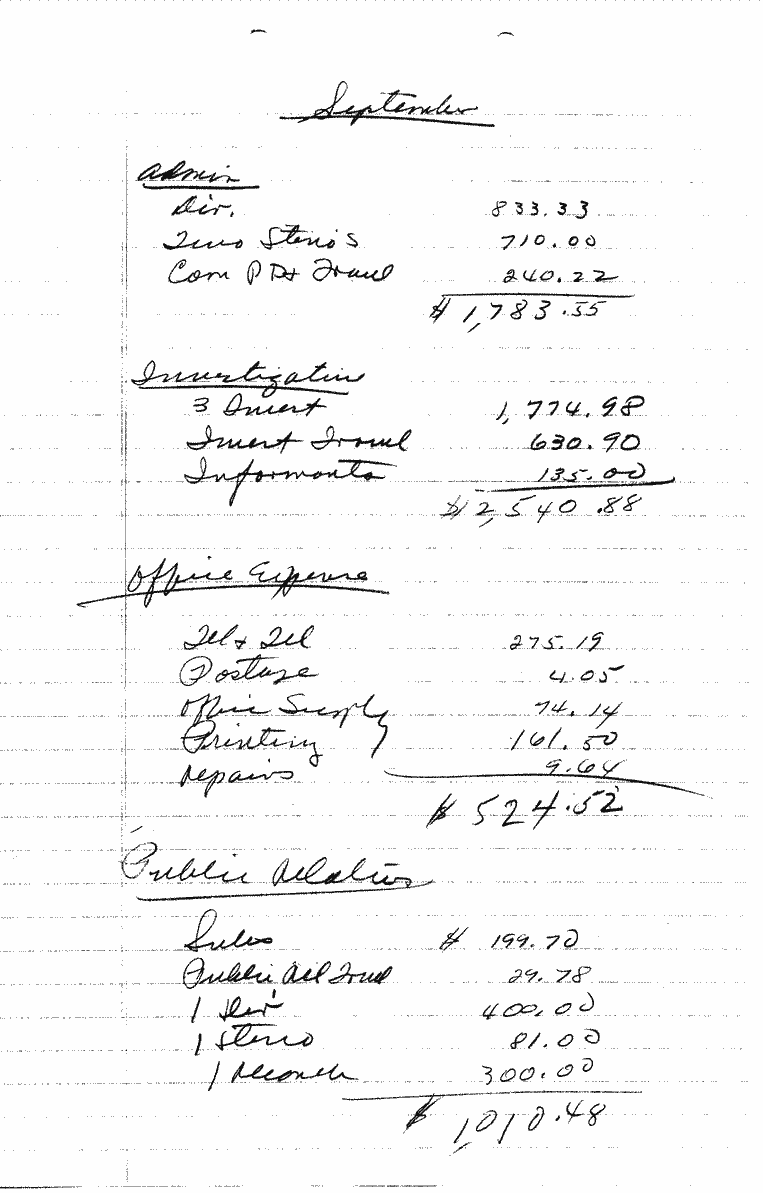 September
Admin
Dir. 833.33
Two Steno's 710.00
Com P D+ Travel 240.22
$ 1,783.55
Investigative
3 Invest 1,774.98
Invest Travel 630.90
Informants 135.00
$ 2,540.88
Office Expense
Tel + Tel 275.19
Postage 4.05
Office Supply 74.14
Printing 161.50
repairs 9.64
$ 524.52
Public Relations
Subs $ 199.70
Public Rel Travel 29.78
1 Dir 400.00
1 Steno 81.00
1 300.00
$ 1,010.48